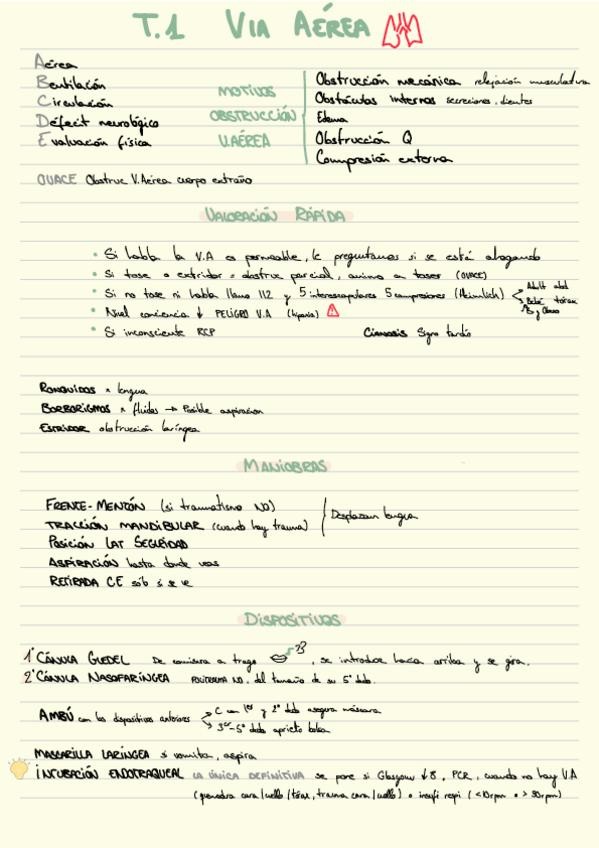 T.1 VIA AÉREA
Aérea
Bentilación
Circulación
Déficit neurológico
Evaluación física
MOTIVOS
OBSTRUCCIÓN
V.AÉREA
Obstrucción mecánica relajación musculatura
Obstáculos internos secreciones, dientes
Edema
Obstrucción Q
Compresión externa
OVACE Obstruc V.Aérea cuerpo extraño
VALORACIÓN RÁPIDA
• Si habla la V.A es permeable, le preguntamos si se está ahogando
• Si tose o estridor = obstruc parcial, animo a toser (OVACE)
• Si no tose ni habla llamo 112 y 5 interescapulares 5 compresiones (Heimlich)
Adult abd
Bebé torax
y Obeso
• Nivel conciencia ↓ PELIGRO V.A (hipoxia)
• Si inconsciente RCP
Cianosis Signo tardío
RONQUIDOS x lengua
BORBORIGMOS x fluidos → Posible aspiracion
ESTRIDOR obstrucción laríngea
MANIOBRAS
FRENTE-MENTÓN (si traumatismo NO)
TRACCIÓN MANDIBULAR (cuando hay trauma)
Desplazan lengua
POSICIÓN LAT SEGURIDAD
ASPIRACIÓN hasta donde veas
RETIRADA C.E sólo si se ve
DISPOSITIVOS
1º CÁNULA GUEDEL De comisura a trago, se introduce hacia arriba y se gira.
2º CÁNULA NASOFARÍNGEA NO, del tamaño de su 5º dedo.
AMBÚ con los dispositivos anteriores
C con 1º y 2º dedo asegura máscara
3º-5º dedo aprieto bolsa
MASCARILLA LARÍNGEA si vomita, aspira
INCUBACIÓN ENDOTRAQUEAL LA ÚNICA DEFINITIVA se pone si Glasgow ↓8, PCR, cuando no hay V.A
(quemadura cara/cuello/tórax, trauma cara/cuello) o insufi respi (<10rpm o >30rpm)